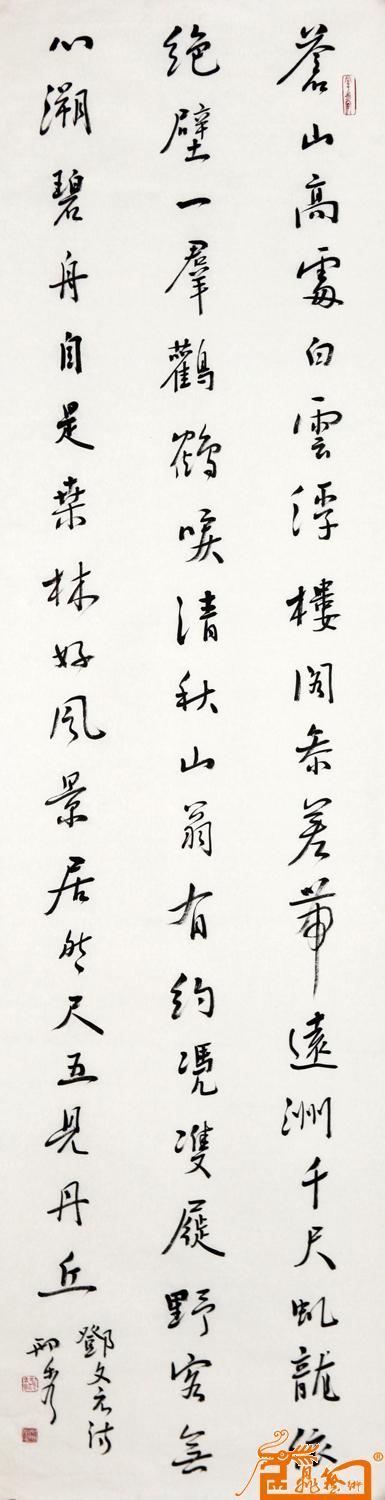 蒼山高處白雲浮樓閣參差帶遠洲千尺虬龍依
絶壁一羣鸛鶴唳清秋山翁有約凴雙屐野客無
心溯碧舟自是桑林好風景居然尺五見丹丘
鄧文原詩